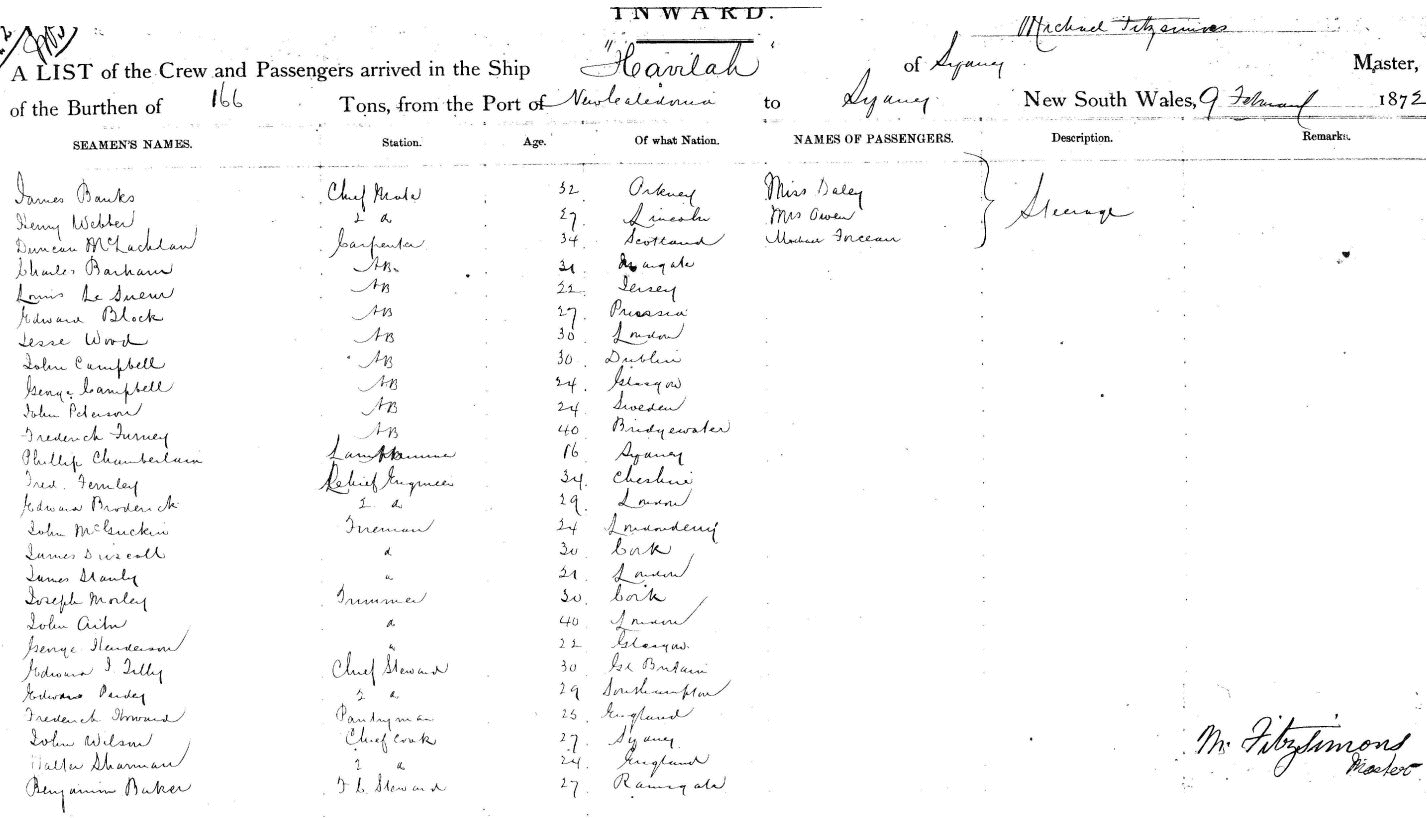 INWARD.
Michael Fitzsimons
A LIST of the Crew and Passengers arrived in the Ship "Havilah" of Sydney Master,
of the Burthen of 166 Tons, from the Port of New Caledonia to Sydney New South Wales, 9 February 1872
SEAMEN'S NAMES. Station. Age. Of what Nation. NAMES OF PASSENGERS. Description. Remarks.
James Banks Chief Mate 32 Orkney Miss Daley Steerage
Henry Webber 2 d 27 Lincoln Mrs Owen
Duncan McLachlan Carpenter 34 Scotland
Charles Barham AB 31 Margate
Louis Le Sueur AB 22 Jersey
Edward Block AB 27 Prussia
Jesse Wood AB 30 London
John Campbell AB 30 Dublin
George Campbell AB 24 Glasgow
John Peterson AB 24 Sweden
Frederick Furney AB 40 Bridgewater
Phillip Chamberlain Lamptrimmer 16 Sydney
Fred. Fernley Chief Engineer 34 Cheshire
Edward Broderick 2 d 29 London
John McGuckin Fireman 24 Londonderry
James Driscoll d 30 Cork
James Stanly d 21 London
Joseph Morley Trimmer 30 Cork
John d 40 London
George Henderson d 22 Glasgow
Edward J. Tilly Chief Steward 30 Gt Britain
Edward Perdey 2 d 29 Southampton
Frederick Howard Pantryman 25 England
John Wilson Chief Cook 27 Sydney
Walter Sharman 2 d 24 England
Benjamin Baker F. C. Steward 27 Ramsgate
M. Fitzsimons
Master